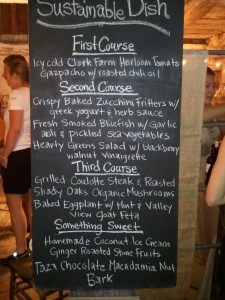 Sustainable Dish
First Course
Icy cold Clark Farm Heirloom Tomato
Gazpacho w/ roasted chili oil
Second Course
Crispy Baked Zucchini Fritters w/
greek yogurt & herb sauce
Fresh Smoked Bluefish w/ Garlic
aioli & pickled sea vegetables
Hearty Greens Salad w/ blackberry
walnut vinaigrette
Third Course
Grilled Coulotte Steak & Roasted
Shady Oaks Organic Mushrooms
Baked Eggplant w/ Mint & Valley
View Goat Feta
Something Sweet
Homemade Coconut Ice Cream
Ginger Roasted Stone Fruits
Taza Chocolate Macadamia Nut
Bark